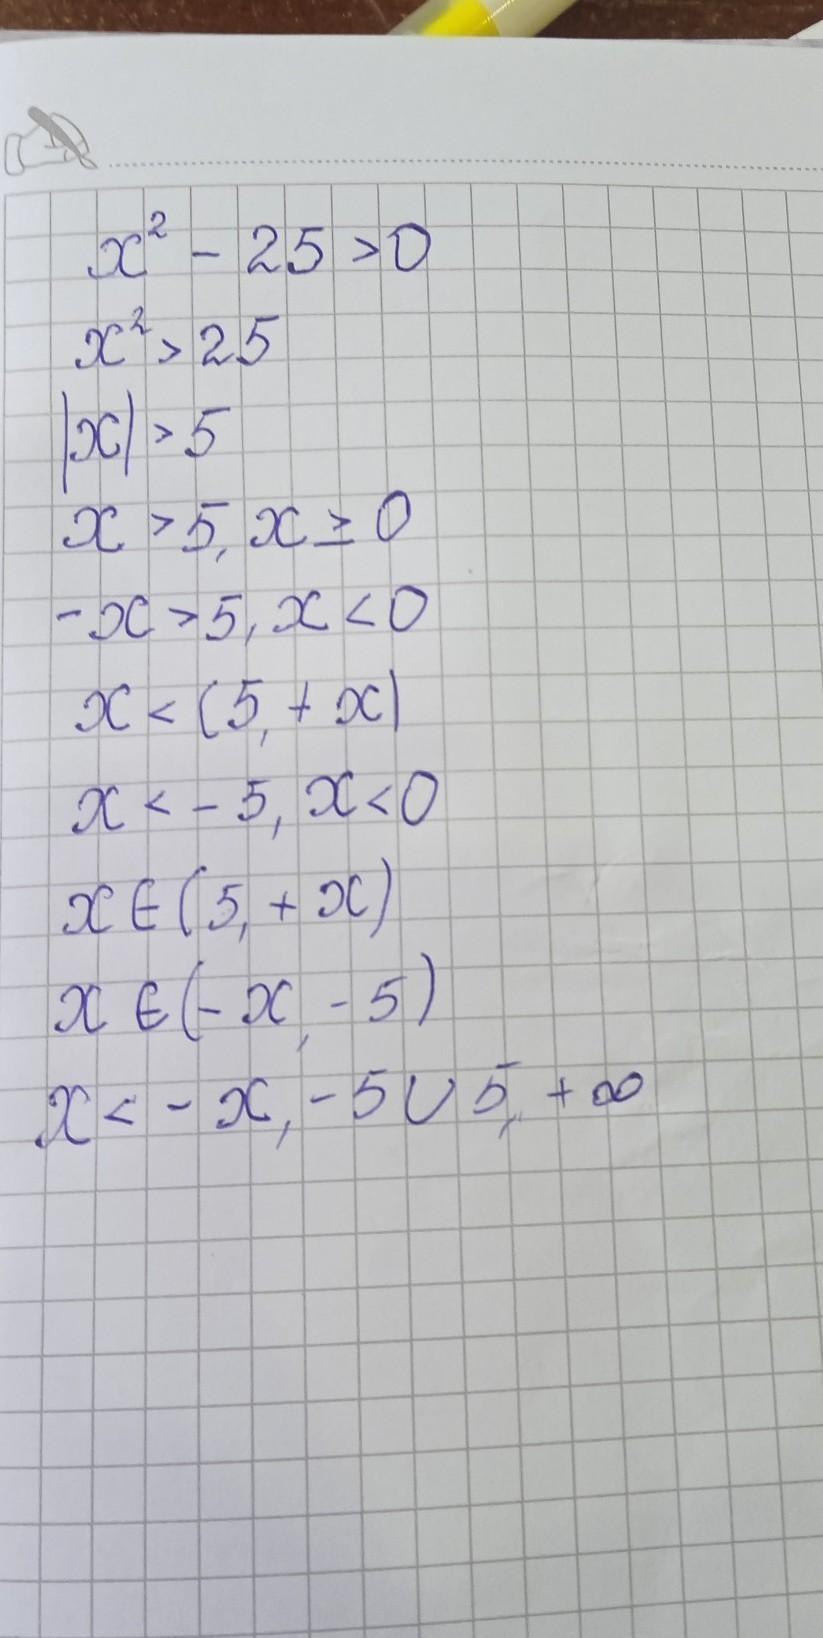 x² - 25 > 0
x² > 25
|x| > 5
x > 5, x ≥ 0
-x > 5, x < 0
x < (5, + x)
x < - 5, x < 0
x ∈ (5, + x)
x ∈ (- x, - 5)
x < - x, - 5 ∪ 5, + ∞